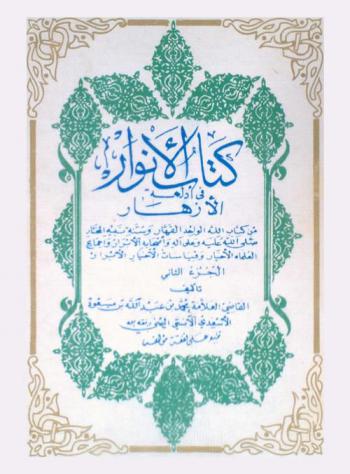 كتاب الأنوار
في أدلة
الأزهار
من كتاب الله الواحد القهار وسنة نبيه المختار
صلى الله عليه وعلى آله وأصحابه الأبرار وإجماع
العلماء الأخيار وقياسات الأخبار
الجزء الثاني
تأليف
القاضي العلامة محمد بن عبد الله بن
الأسعدي